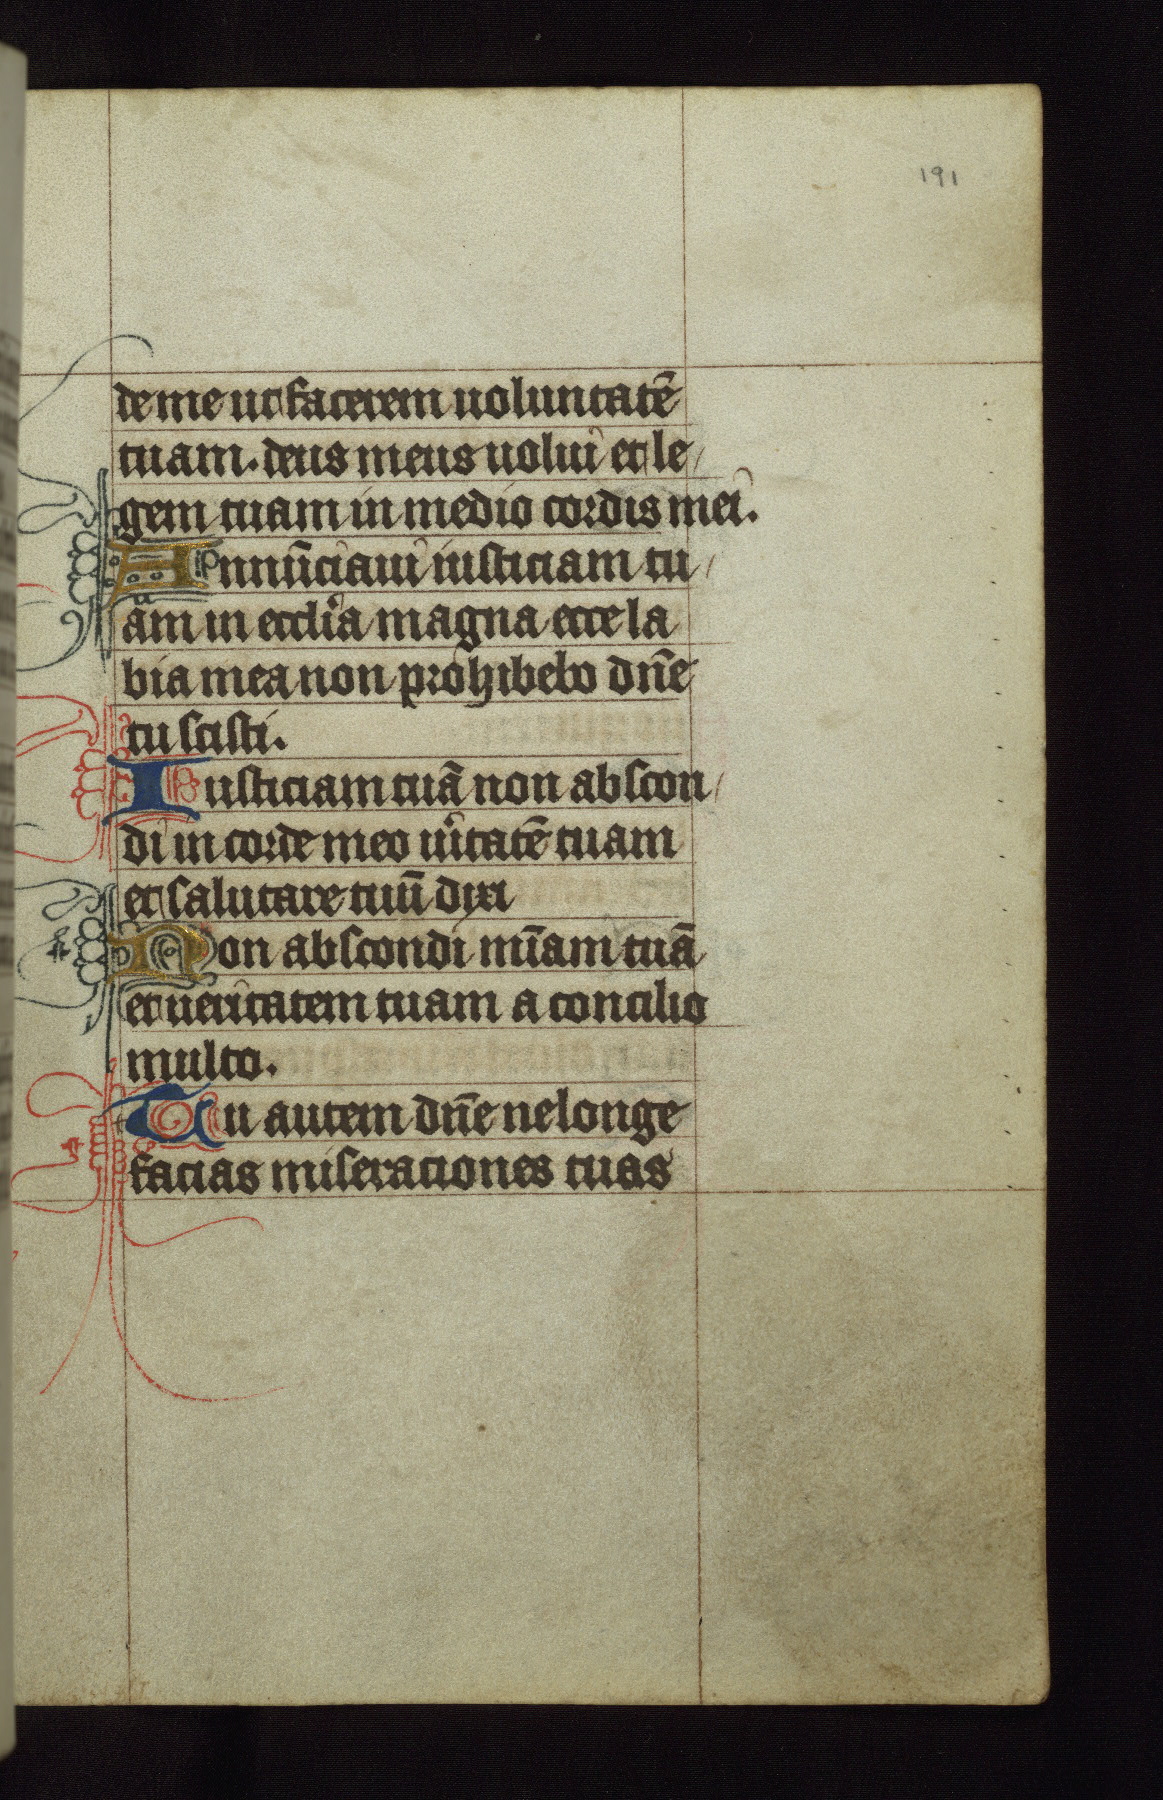 191
de me ut facerem uoluntatē
tuam. deus meus uolui et le
gem tuam in medio cordis mei.
Annūciaui iusticiam tu
am in eccl'ia magna ecce la
bia mea non prohibebo dn̄e
tu scisti.
Iusticiam tuā non abscon
di in corde meo uitatē tuam
et salutare tuū dixi
Non abscondi mīam tuā
et ueritatem tuam a concilio
multo.
Tu autem dn̄e ne longe
facias miseraciones tuas